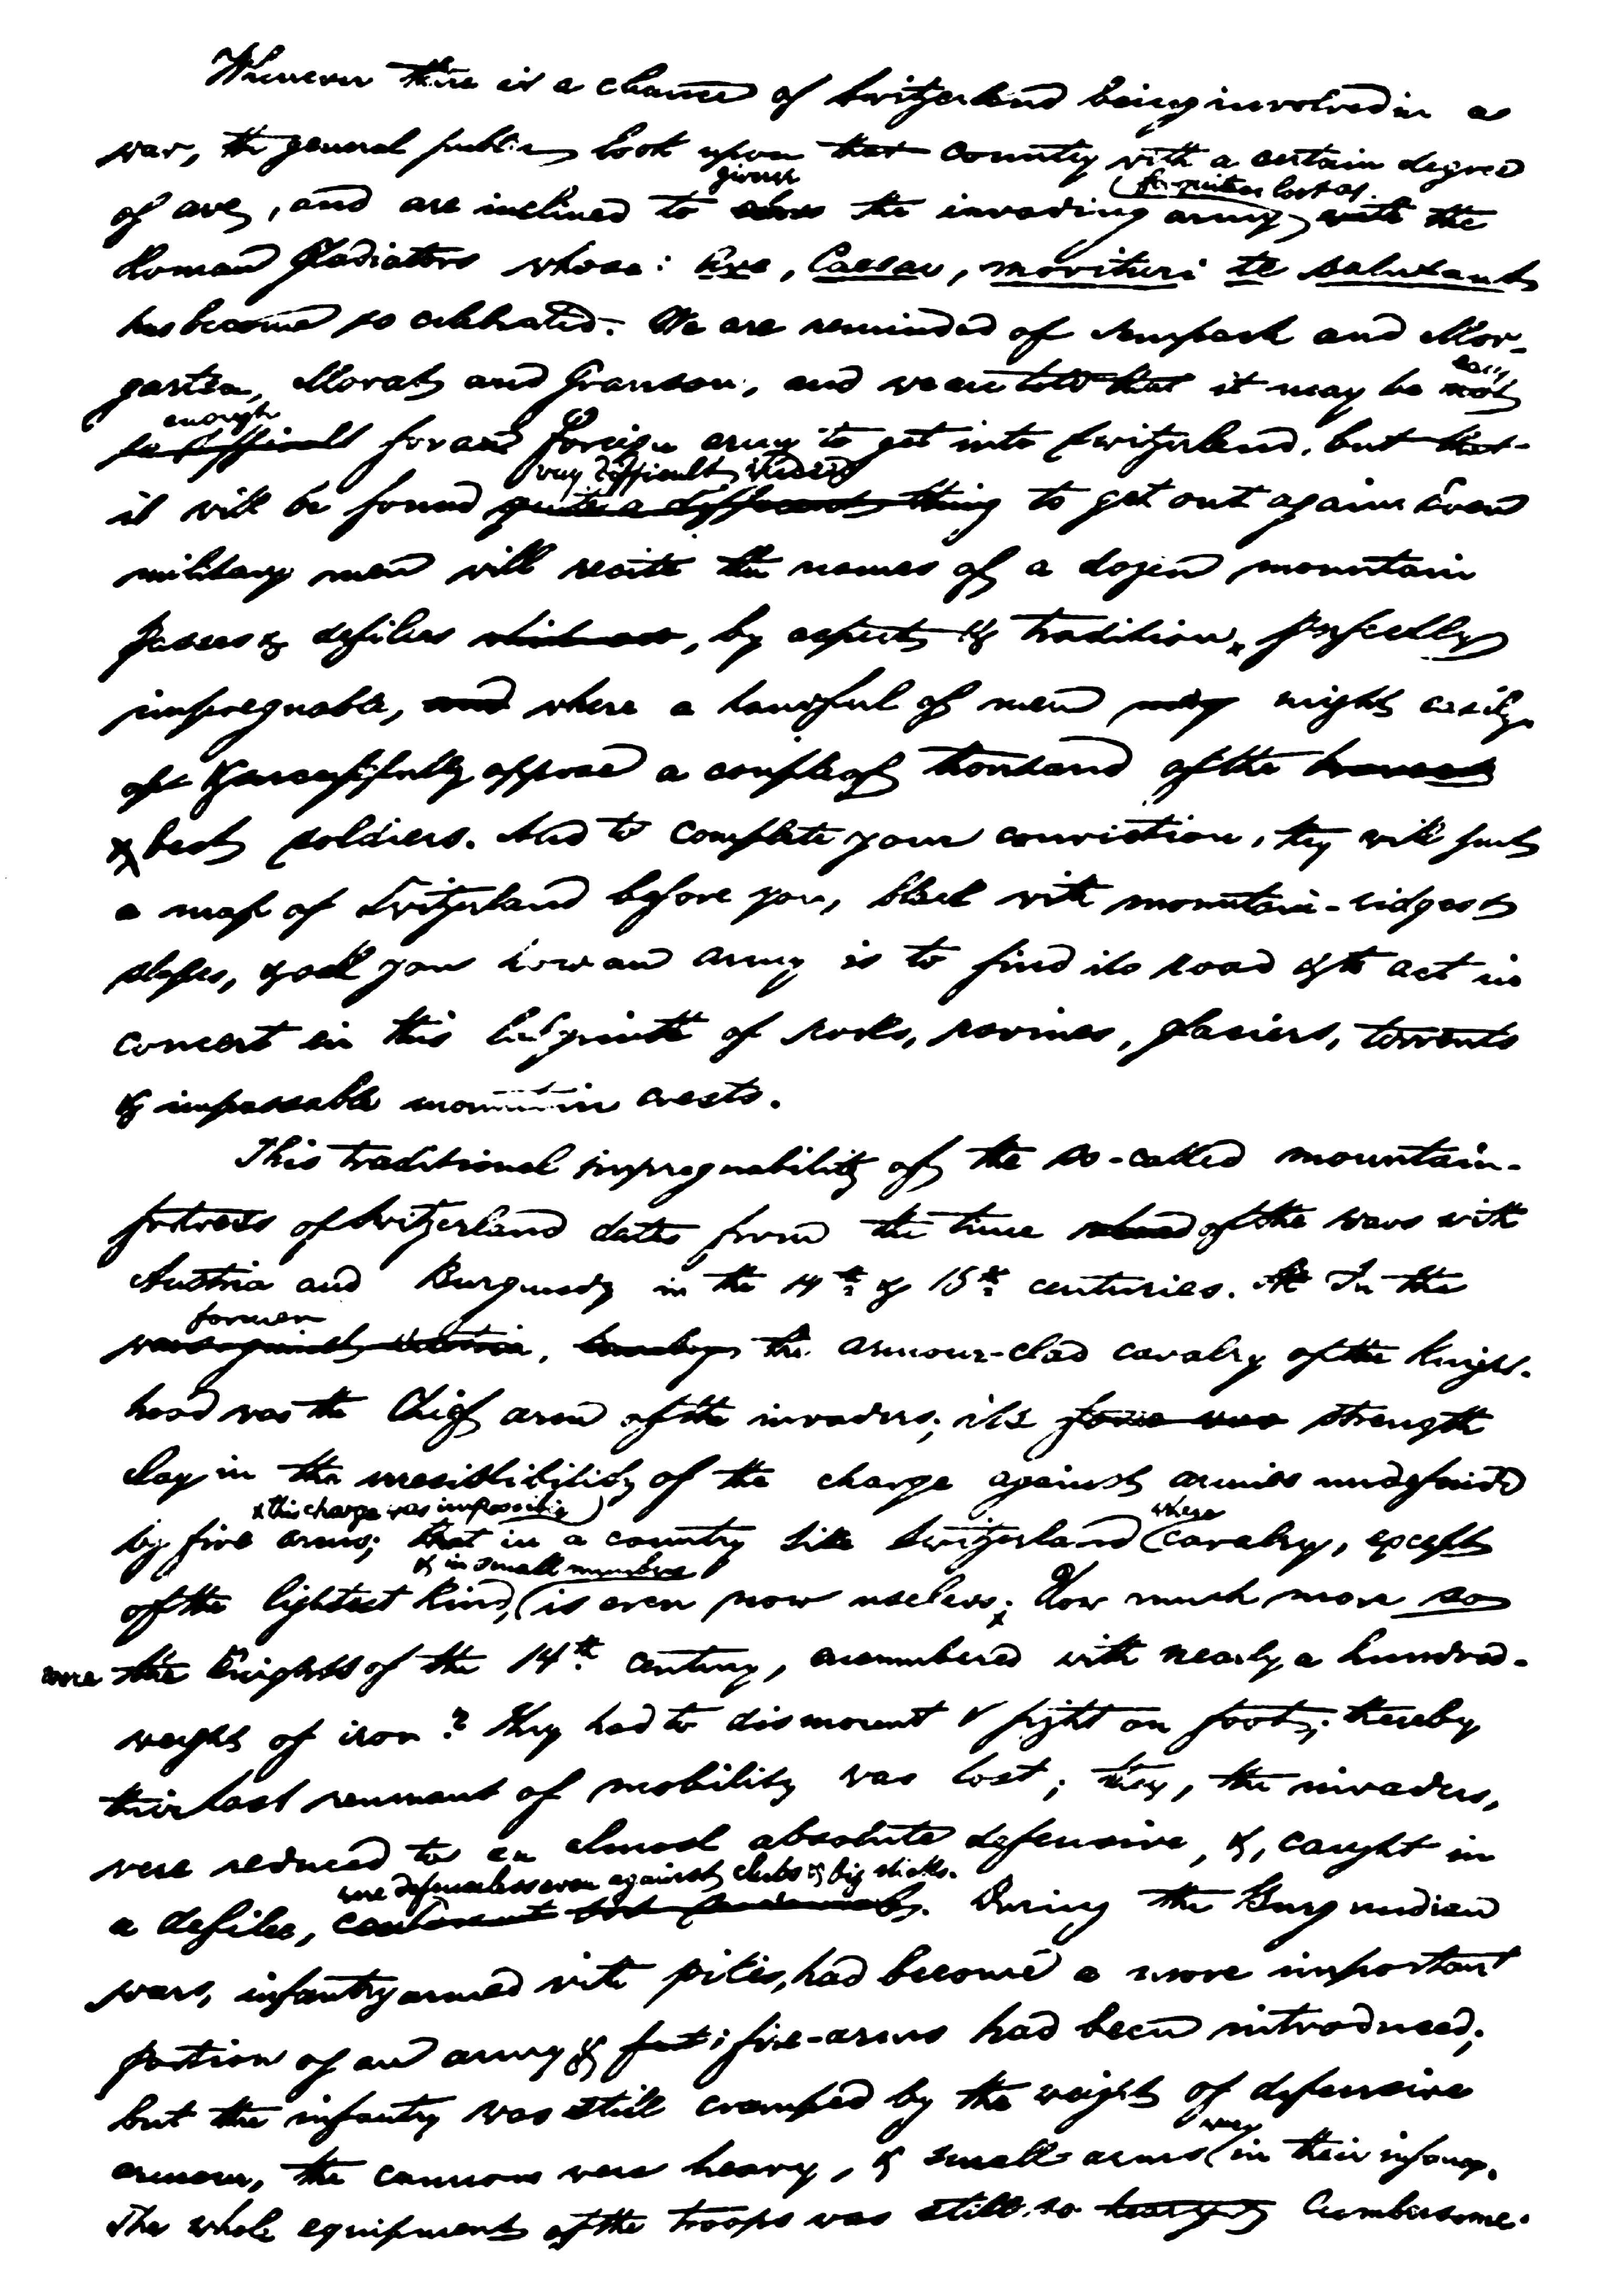 Whenever there is a chance of Switzerland being involved in a
war, the general public look upon that country with a certain degree
given (for quite lost as
of awe, and are inclined to the invading army, with the
Roman Gladiators whose: Ave, Caesar, morituri te salutant
has become so celebrated. We are reminded of Sempach and Mor-
garten, Morat and Granson, and we are told that it may be not
easy
enough
so difficult for a foreign army to get into Switzerland, but that
very difficult indeed
it will be found quite a different thing to get out again. Even
military men will recite the names of a dozen mountain
passes & defiles which are, by aspect & tradition, perfectly
impregnable, and where a handful of men may might easily
& successfully oppose a couple of thousand of the bravest
& best soldiers. And to complete your conviction, they will put
a map of Switzerland before you, black with mountain-ridges &
slopes, & ask you how an army is to find its road & to act in
concert in this labyrinth of rocks, ravines, glaciers, torrents
& impassable mountain crests.
This traditional impregnability of the so-called mountain-
fortress of Switzerland dates from the time when of the wars with
Austria and Burgundy in the 14th & 15th centuries. At In the
former
wars against Austria, the armour-clad cavalry of the Knight-
hood was the Chief arm of the invaders; its force was strength
lay in the irresistibility of the charge against armies undefended
& this charge was impossible where
by fire arms; that in a country like Switzerland (cavalry, except
& in small numbers
of the lightest kind, (is even now useless; How much more so
were the Knights of the 14th century, encumbered with nearly a hundred-
weight of iron? They had to dismount & fight on foot; thereby
their last remnant of mobility was lost; they, the invaders,
were reduced to an almost absolute defensive, &, caught in
were defenceless even against clubs & big sticks.
a defile, could not. During the Burgundian
wars, infantry armed with pikes, had become a more important
portion of an army & fire-arms had been introduced;
but the infantry was still cramped by the weight of defensive
were
armour, the cannons were heavy, & small arms (in their infancy.
The whole equipment of the troops was still so heavy cumbersome